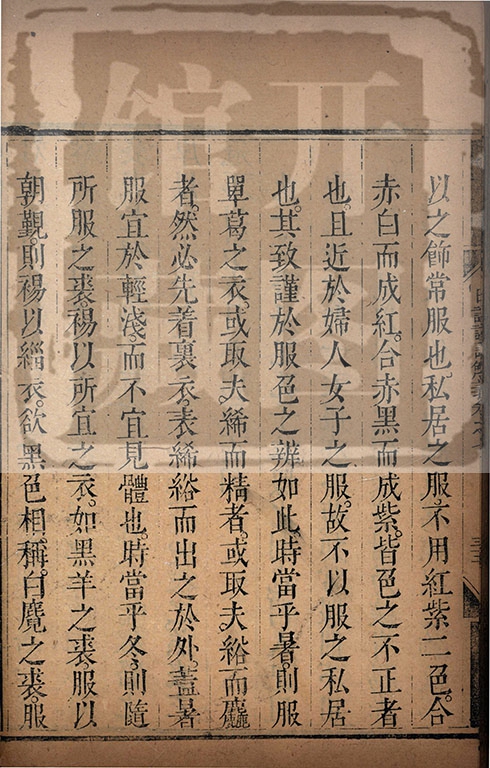 以之飾常服也。私居之服。不用紅紫二色。合
赤白而成紅。合赤黑而成紫。皆色之不正者
也。且近於婦人女子之服。故不以服之私居
也。其致謹於服色之辨如此。時當乎暑。則服
單葛之衣。或取夫絺而精者。或取夫綌而麤
者。然必先着裏衣。表絺綌而出之於外。蓋暑
服宜於輕淺。而不宜見體也。時當乎冬。則隨
所服之裘。裼以所宜之衣。如黑羊之裘。服以
朝覲。則裼以緇衣。欲黑色相稱。白麑之裘服